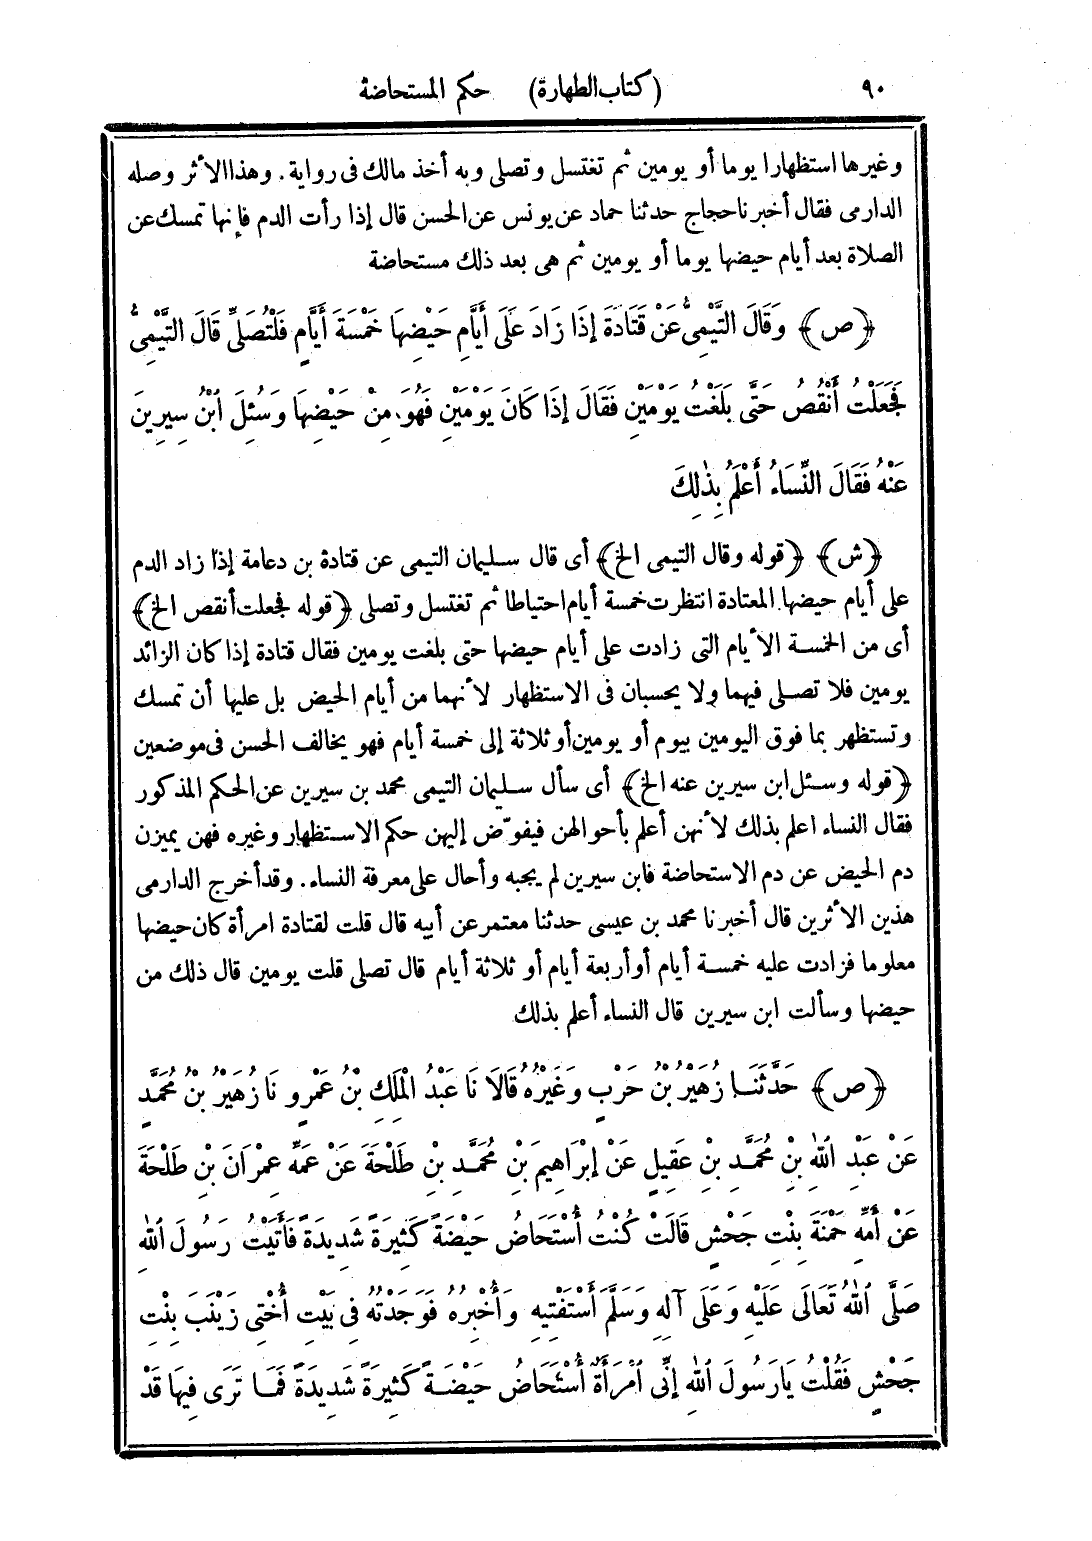 ٩٠ (كتاب الطهارة) حكم المستحاضة
وغيرها استظهارا يوما أو يومين ثم تغتسل وتصلى وبه أخذ مالك فى رواية. وهذا الأثر وصله
الدارمى فقال أخبرنا حجاج حدثنا حماد عن يونس عن الحسن قال إذا رأت الدم فإنها تمسك عن
الصلاة بعد أيام حيضها يوما أو يومين ثم هى بعد ذلك مستحاضة
﴿ص﴾ وَقَالَ التَّيْمِىُّ عَنْ قَتَادَةَ إِذَا زَادَ عَلَى أَيَّامِ حَيْضِهَا خَمْسَةَ أَيَّامٍ فَلْتُصَلِّ قَالَ التَّيْمِىُّ
فَجَعَلْتُ أَنْقُصُ حَتَّى بَلَغْتُ يَوْمَيْنِ فَقَالَ إِذَا كَانَ يَوْمَيْنِ فَهُوَ مِنْ حَيْضِهَا وَسُئِلَ ابْنُ سِيرِينَ
عَنْهُ فَقَالَ النِّسَاءُ أَعْلَمُ بِذٰلِكَ
﴿ش﴾ ﴿قوله وقال التيمى الخ﴾ أى قال سليمان التيمى عن قتادة بن دعامة إذا زاد الدم
على أيام حيضها المعتادة انتظرت خمسة أيام احتياطا ثم تغتسل وتصلى ﴿قوله فجعلت أنقص الخ﴾
أى من الخمسة الأيام التى زادت على أيام حيضها حتى بلغت يومين فقال قتادة إذا كان الزائد
يومين فلا تصلى فيهما ولا يحسبان فى الاستظهار لأنهما من أيام الحيض بل عليها أن تمسك
وتستظهر بما فوق اليومين بيوم أو يومين أو ثلاثة إلى خمسة أيام فهو يخالف الحسن فى موضعين
﴿قوله وسئل ابن سيرين عنه الخ﴾ أى سأل سليمان التيمى محمد بن سيرين عن الحكم المذكور
فقال النساء اعلم بذلك لأنهن أعلم بأحوالهن فيفوّض إليهن حكم الاستظهار وغيره فهن يميزن
دم الحيض عن دم الاستحاضة فابن سيرين لم يجبه وأحال على معرفة النساء. وقد أخرج الدارمى
هذين الأثرين قال أخبرنا محمد بن عيسى حدثنا معتمر عن أبيه قال قلت لقتادة امرأة كان حيضها
معلوما فزادت عليه خمسة أيام أو أربعة أيام أو ثلاثة أيام قال تصلى قلت يومين قال ذلك من
حيضها وسألت ابن سيرين قال النساء أعلم بذلك
﴿ص﴾ حَدَّثَنَا زُهَيْرُ بْنُ حَرْبٍ وَغَيْرُهُ قَالَا نَا عَبْدُ الْمَلِكِ بْنُ عَمْرٍو نَا زُهَيْرُ بْنُ مُحَمَّدٍ
عَنْ عَبْدِ اللهِ بْنِ مُحَمَّدِ بْنِ عَقِيلٍ عَنْ إِبْرَاهِيمَ بْنِ مُحَمَّدِ بْنِ طَلْحَةَ عَنْ عَمِّهِ عِمْرَانَ بْنِ طَلْحَةَ
عَنْ أُمِّهِ حَمْنَةَ بِنْتِ جَحْشٍ قَالَتْ كُنْتُ أُسْتَحَاضُ حَيْضَةً كَثِيرَةً شَدِيدَةً فَأَتَيْتُ رَسُولَ اللهِ
صَلَّى اللهُ تَعَالَى عَلَيْهِ وَعَلَى آلِهِ وَسَلَّمَ أَسْتَفْتِيهِ وَأُخْبِرُهُ فَوَجَدْتُهُ فِى بَيْتِ أُخْتِى زَيْنَبَ بِنْتِ
جَحْشٍ فَقُلْتُ يَارَسُولَ اللهِ إِنِّى امْرَأَةٌ أُسْتَحَاضُ حَيْضَةً كَثِيرَةً شَدِيدَةً فَمَا تَرَى فِيهَا قَدْ